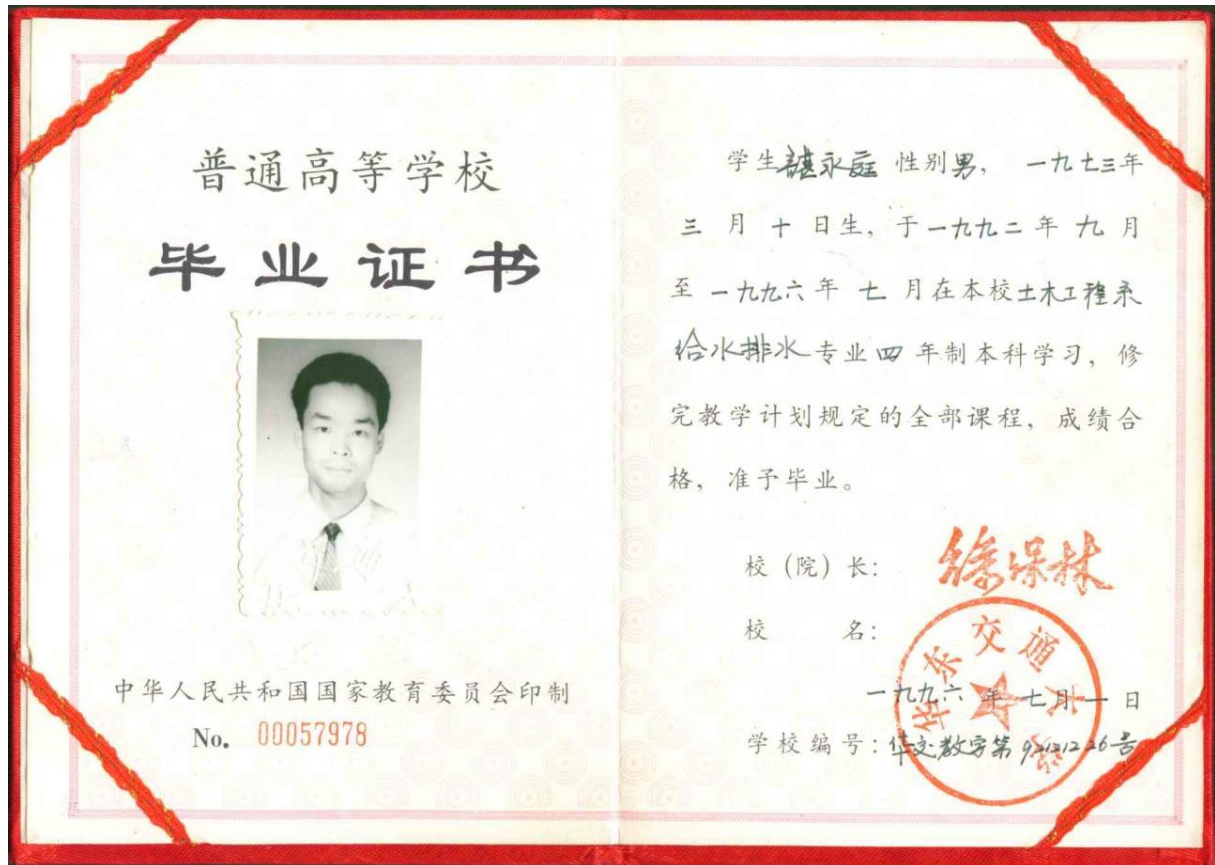 普通高等学校
毕业证书
中华人民共和国国家教育委员会印制
No. 00057978
学生谌永庭 性别男, 一九七三年
三月十日生, 于一九九二年九月
至一九九六年七月在本校土木工程系
给水排水专业四年制本科学习, 修
完教学计划规定的全部课程, 成绩合
格, 准予毕业。
校(院)长:
校 名:
华东交通大学
一九九六年七月一日
学校编号: 华交教字第92121226号